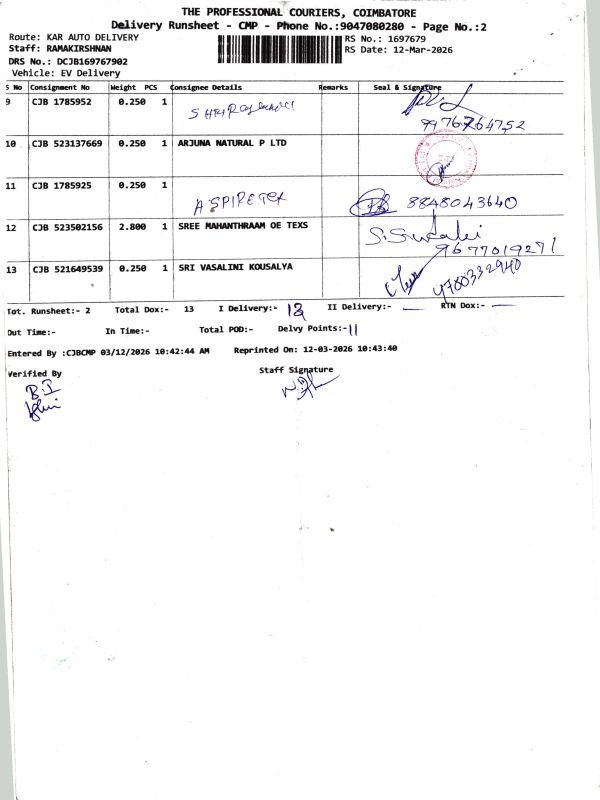 THE PROFESSIONAL COURIERS, COIMBATORE
Delivery Runsheet - CMP - Phone No.:9047080280 - Page No.:2
Route: KAR AUTO DELIVERY
RS No.: 1697679
Staff: RAMAKIRSHNAN
RS Date: 12-Mar-2026
DRS No.: DCJB169767902
Vehicle: EV Delivery
S No Consignment No Weight PCS Consignee Details Remarks Seal & Signature
9 CJB 1785952 0.250 1
9976764752
10 CJB 523137669 0.250 1 ARJUNA NATURAL P LTD
11 CJB 1785925 0.250 1
ASPIRETEX 8848043640
12 CJB 523502156 2.800 1 SREE MAHANTHRAAM OE TEXS
9677019271
13 CJB 521649539 0.250 1 SRI VASALINI KOUSALYA
Tot. Runsheet:- 2 Total Dox:- 13 I Delivery:- 13 II Delivery:- — RTN Dox:- —
Out Time:- In Time:- Total POD:- Delvy Points:- 11
Entered By :CJBCMP 03/12/2026 10:42:44 AM Reprinted On: 12-03-2026 10:43:40
Verified By Staff Signature